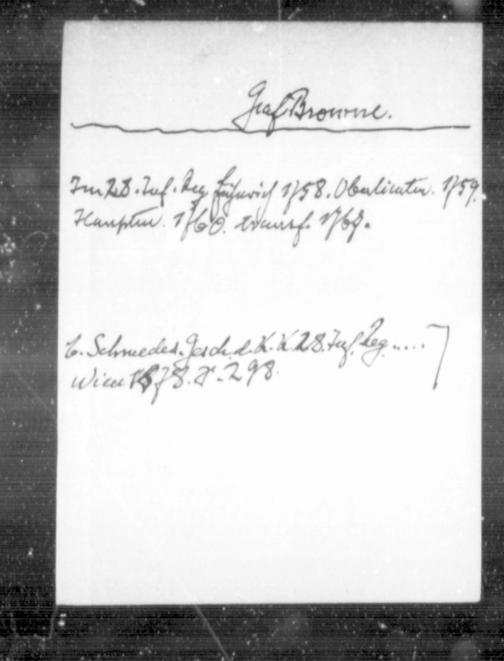 Graf Browne.
Im 28. Inf. Reg. Fähnrich 1758. Oberlieutn. 1759.
Hauptm. 1760. transf. 1769.
C. Schmedes. Gesch. d. K. K. 28. Inf. Reg. ....
Wien 1878. S. 298.